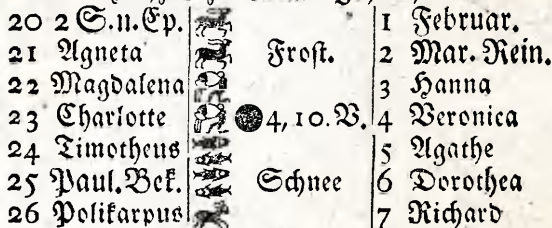 20 2 S. n. Ep. 1 Februar.
21 Agneta Frost. 2 Mar. Rein.
22 Magdalena 3 Hanna
23 Charlotte 4, 10. V. 4 Veronica
24 Timotheus 5 Agathe
25 Paul. Bek. Schnee 6 Dorothea
26 Polikarpus 7 Richard